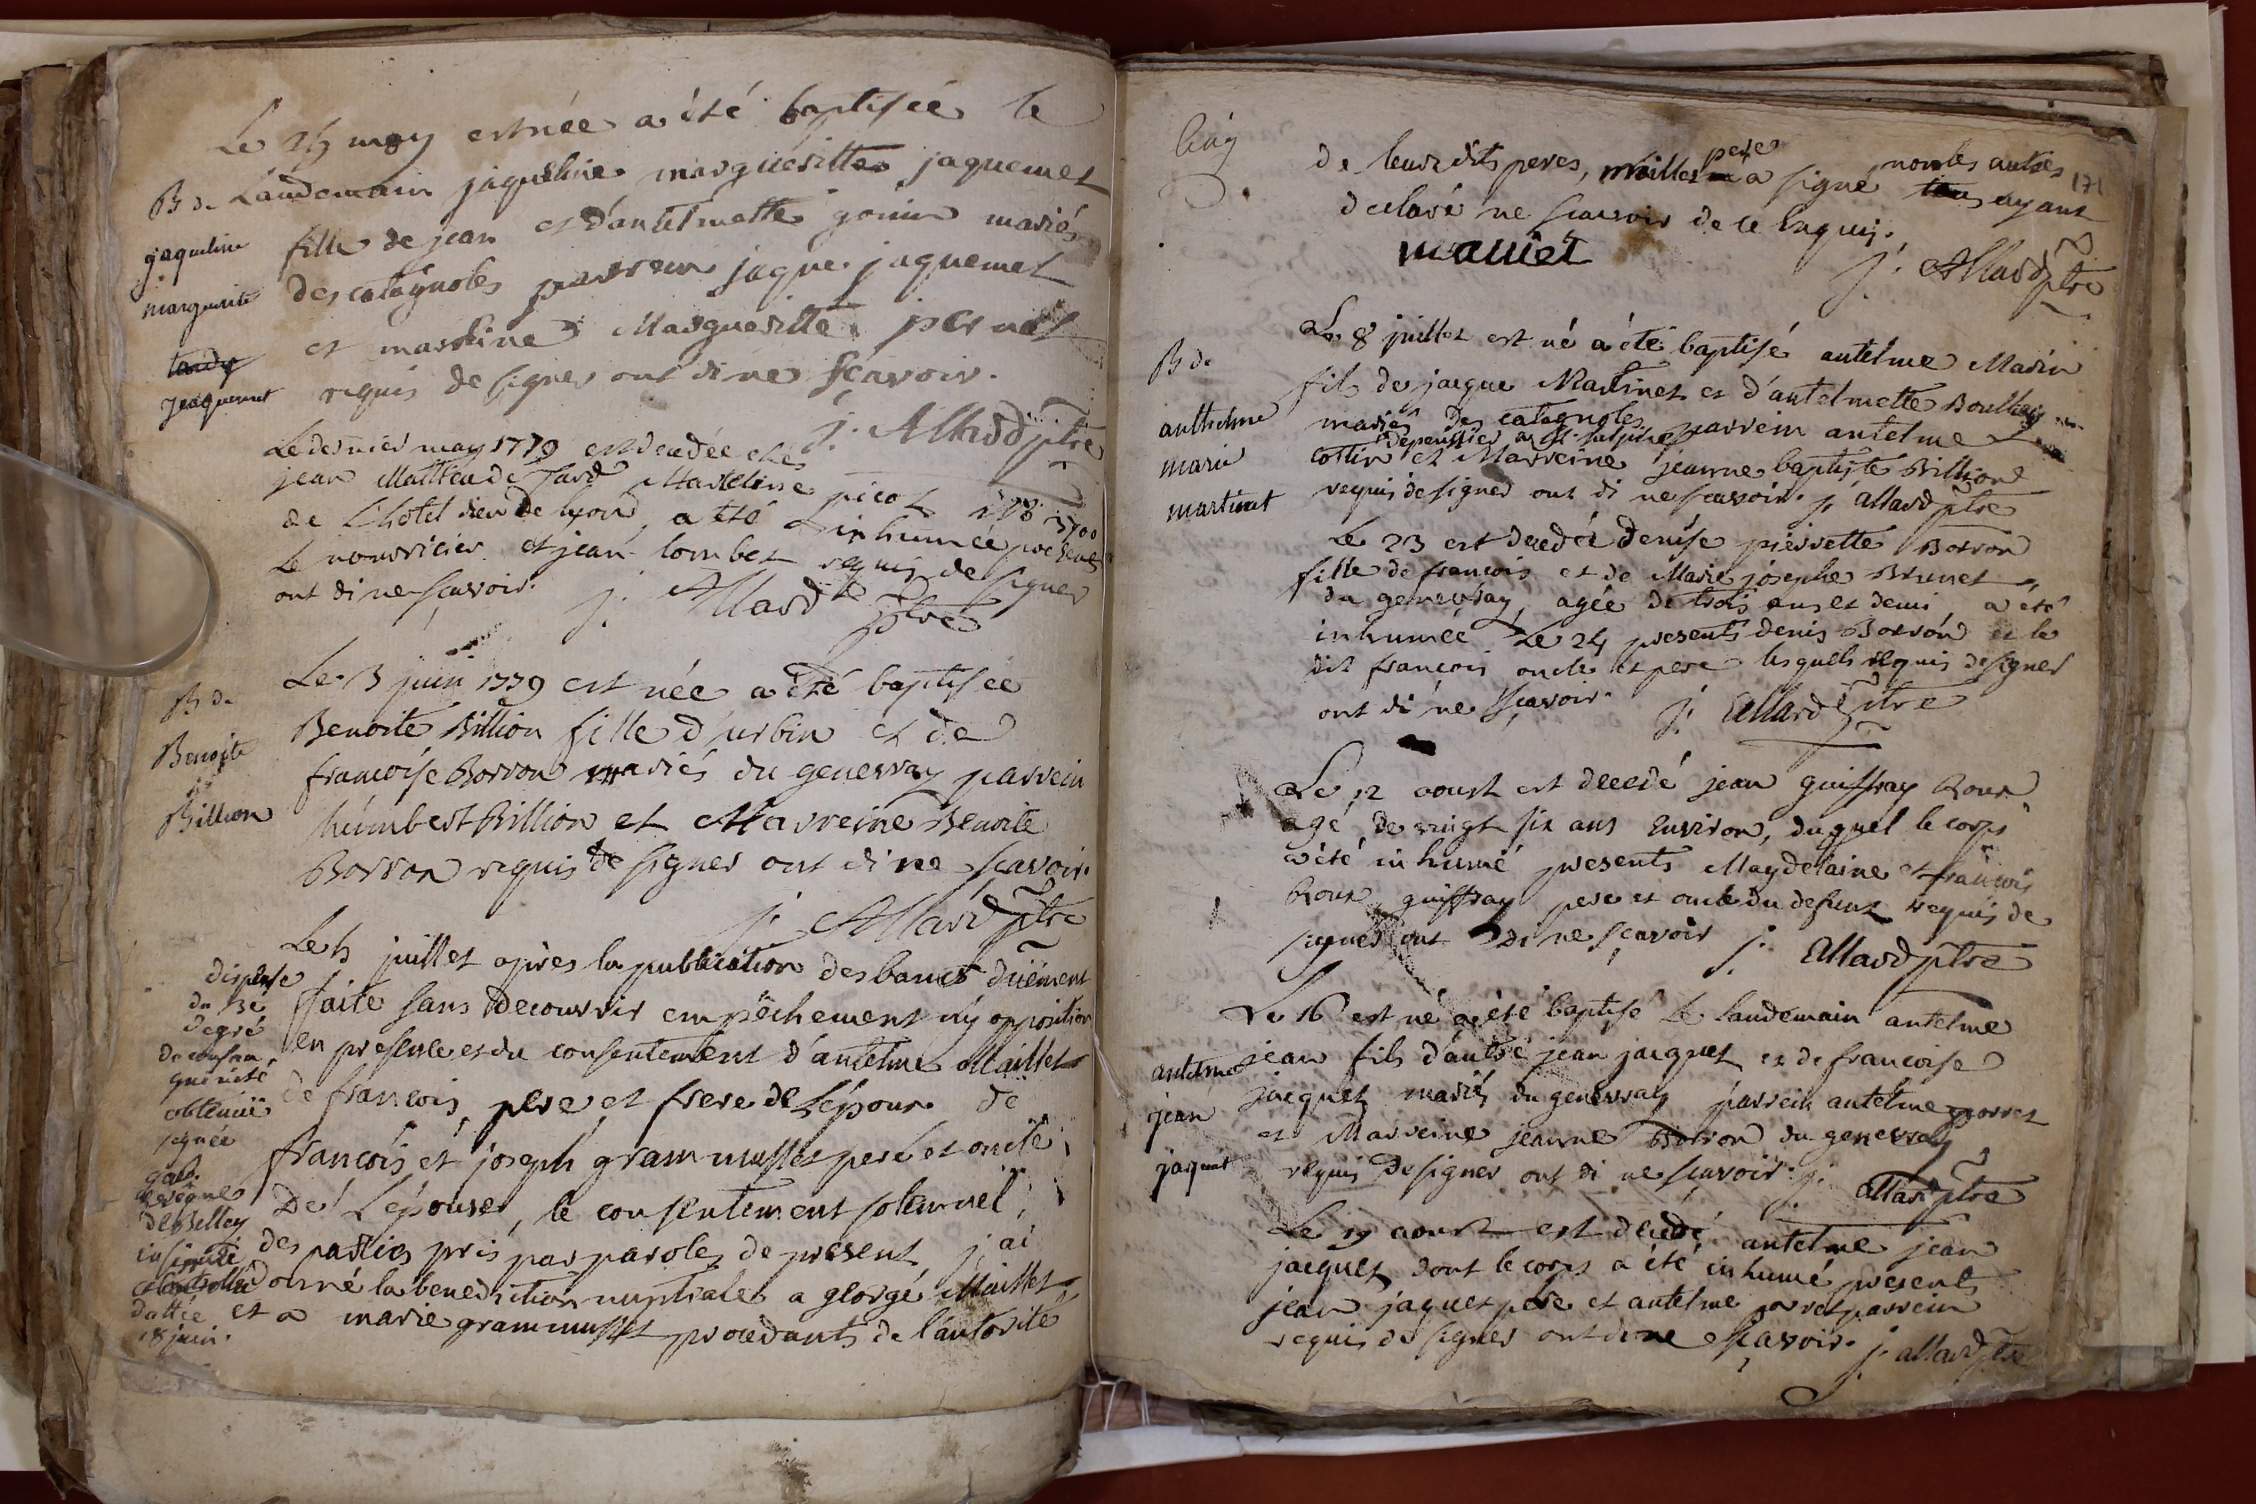 Le 25 may est née a été baptisée le
B de
Landemain jaqueline margueritte jaquemet
jaqueline
fille de jean et d'antelmette gonin mariés
marguerite
des catagnoles parrein jaque jaquemet
et marreine Margueritte pernet
jeaquemet
requis de signer ont di ne sçavoir.
j. Allard ptre
Le dernier may 1779 est decedée chez
jean Matthieu de Marceline picot
de L'hotel dieu de lyon, a été inhumée presents
Le nourricier et jean lombet requis de signer
ont di ne sçavoir.
j. Allard ptre
B de
Benoite
Billion
Le 3 juin 1779 est née a été baptisée
Benoite Billion fille d'urbin et de
francoise Borron mariés du genevray parrein
humbert Billion et Marreine Benoite
Borron requis de signer ont di ne sçavoir.
j. Allard ptre
dispense
du 3e
degré
de consan
guinité
obtenüe
signée
gab.
evêque
de Belley
insinuée
et controllée
dattée
18 juin.
Le 5 juillet après la publication des bancs düement
faite sans decouvrir empêchement n'y opposition
en presence et du consentement d'antelme Maillet
de francois, pere et frere de L'épour de
françois et joseph grammusset pere et oncle
De L'épouse, le consentement solemnel
des parties pris par paroles de present j'ai
donné la benediction nuptiale a george Maillet
et a marie grammusset procedants de l'autorité
171
de leurs dits peres, maillet pere a signé non les autres ayant
declaré ne sçavoir de ce enquis.
mauiet
j. Allard ptre
B de
anthelme
marin
martinet
Le 8 juillet est né a été baptisé antelme Marin
fils de jacque Martinet et d'antelmette
mariés des catagnoles parrein antelme
costin et Marreine jeanne baptiste Billion
requis de signer ont di ne sçavoir. j. allard ptre
Le 23 est decedée denise pierrette Borron
fille de francois et de Marie josephe Brunet
du genevray, agée de trois ans et demi, a été
inhumée Le 24 presents denis Borron et le
dit françois oncle et pere lesquels requis de signer
ont di ne sçavoir. j. Allard ptre
Le 12 aoust est decedé jean guiffray Roux
agé de vingt six ans Environ, duquel le corps
a été inhumé presents Magdelaine et françois
Roux guiffray pere et oncle du defunt requis de
signer ont di ne sçavoir j. Allard ptre
antelme
jean
jaquet
Le 16 est né a été baptisé Le Landemain antelme
jean fils d'autre jean jacquet et de francoise
jacquet mariés du genevray parrein antelme porret
et Marreine jeanne Borron du genevray
requis de signer ont di ne sçavoir. j. Allard ptre
Le 19 aoust est decedé antelme jean
jacquet dont le corps a été inhumé presents
jean jaquet pere et antelme porret parrein
requis de signer ont di ne sçavoir. j. allard ptre